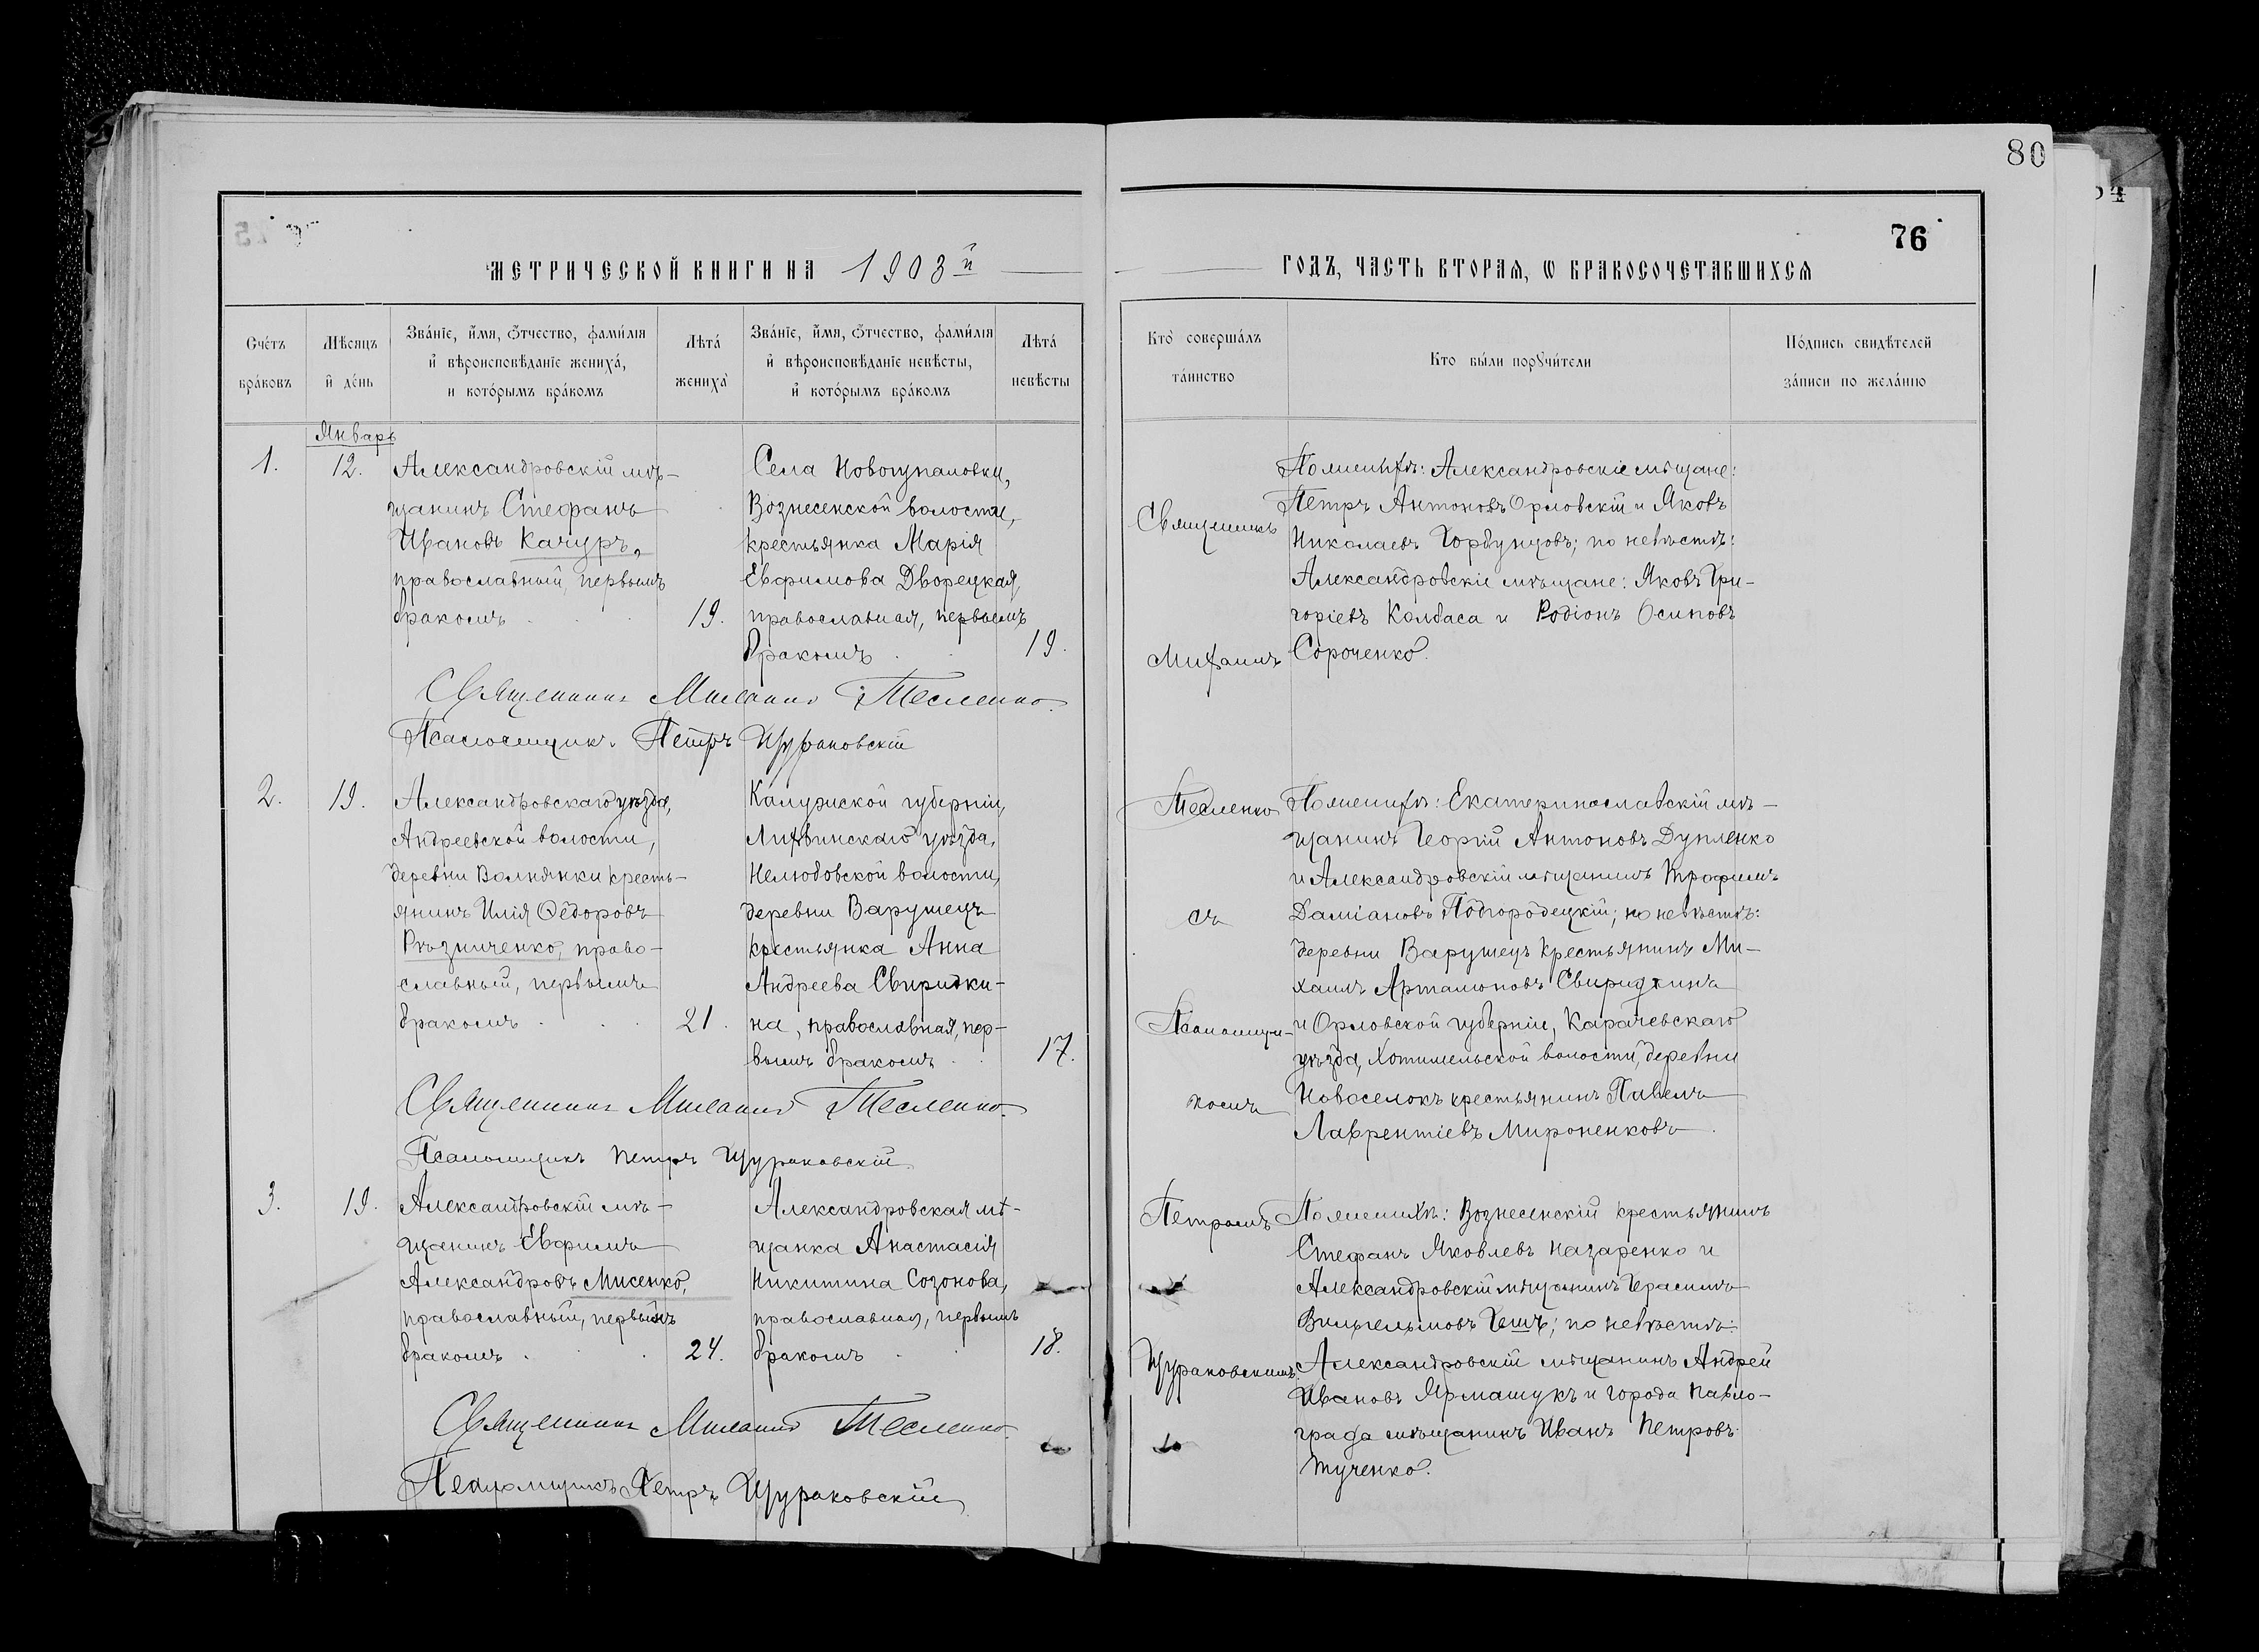 80
76
МЕТРИЧЕСКОЙ КНИГИ НА 1903 й
ГОДЪ, ЧАСТЬ ВТОРАЯ, Ѡ БРАКОСОЧЕТАВШИХСЯ
Счетъ браковъ
Мѣсяцъ и день
Званіе, имя, отчество, фамилія и вѣроисповѣданіе жениха, и которымъ бракомъ
Лѣта жениха
Званіе, имя, отчество, фамилія и вѣроисповѣданіе невѣсты, и которымъ бракомъ
Лѣта невѣсты
Кто совершалъ таинство
Кто были поручители
Подпись свидѣтелей записи по желанію
Январь
1.
12.
Александровскій мѣ-
щанинъ Стефанъ
Ивановъ Качуръ,
православный, первымъ
бракомъ
19.
Села Новогупаловки,
Вознесенской волости,
крестьянка Марія
Евфимова Дворецкая,
православная, первымъ
бракомъ
19.
Священникъ Михаилъ Тесленко.
Псаломщикъ Петръ Щураковскій
2.
19.
Александровскаго уѣзда,
Андреевской волости,
деревни Волнянки кресть-
янинъ Илія Ѳедоровъ
Рѣзниченко, право-
славный, первымъ
бракомъ
21.
Калужской губерніи,
Лихвинскаго уѣзда,
Нелюбовской волости,
деревни Варушецъ
крестьянка Анна
Андреева Свиридки-
на, православная, пер-
вымъ бракомъ
17.
Священникъ Михаилъ Тесленко.
Псаломщикъ Петръ Щураковскій
3.
19.
Александровскій мѣ-
щанинъ Евфимъ
Александровъ Мисенко,
православный, первымъ
бракомъ
24.
Александровская мѣ-
щанка Анастасія
Никитина Созонова,
православная, первымъ
бракомъ
18.
Священникъ Михаилъ Тесленко.
Псаломщикъ Петръ Щураковскій
Священникъ
Михаилъ
Тесленко
съ
Псаломщи-
комъ
Петромъ
Щураковскимъ.
По женихѣ: Александровскіе мѣщане:
Петръ Антоновъ Орловскій и Яковъ
Николаевъ Горбунцовъ; по невѣстѣ:
Александровскіе мѣщане: Яковъ Гри-
горіевъ Колбаса и Родіонъ Осиповъ
Сороченко.
По женихѣ: Екатеринославскій мѣ-
щанинъ Георгій Антоновъ Дупленко
и Александровскій мѣщанинъ Трофимъ
Даміановъ Подгородецкій; по невѣстѣ:
деревни Варушецъ крестьянинъ Ми-
хаилъ Артамоновъ Свиридкинъ
и Орловской губерніи, Карачевскаго
уѣзда, Хотимльской волости, деревни
Новоселокъ крестьянинъ Павелъ
Лаврентіевъ Мироненковъ.
По женихѣ: Вознесенскій крестьянинъ
Стефанъ Яковлевъ Назаренко и
Александровскій мѣщанинъ Герасимъ
Вильгельмовъ Гешъ; по невѣстѣ:
Александровскій мѣщанинъ Андрей
Ивановъ Ярмашукъ и города Павло-
града мѣщанинъ Иванъ Петровъ
Тученко.